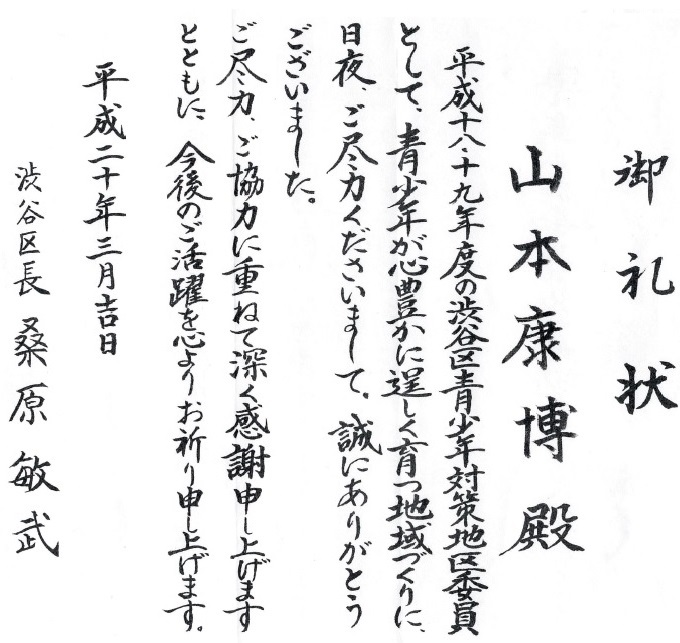 御礼状
山本康博殿
平成十八・十九年度の渋谷区青少年対策地区委員
として、青少年が心豊かに逞しく育つ地域づくりに、
日夜、ご尽力くださいまして。誠にありがとう
ございました。
ご尽力、ご協力に重ねて深く感謝申し上げます
とともに、今後のご活躍を心よりお祈り申し上げます。
平成二十年三月吉日
渋谷区長 桑原敏武